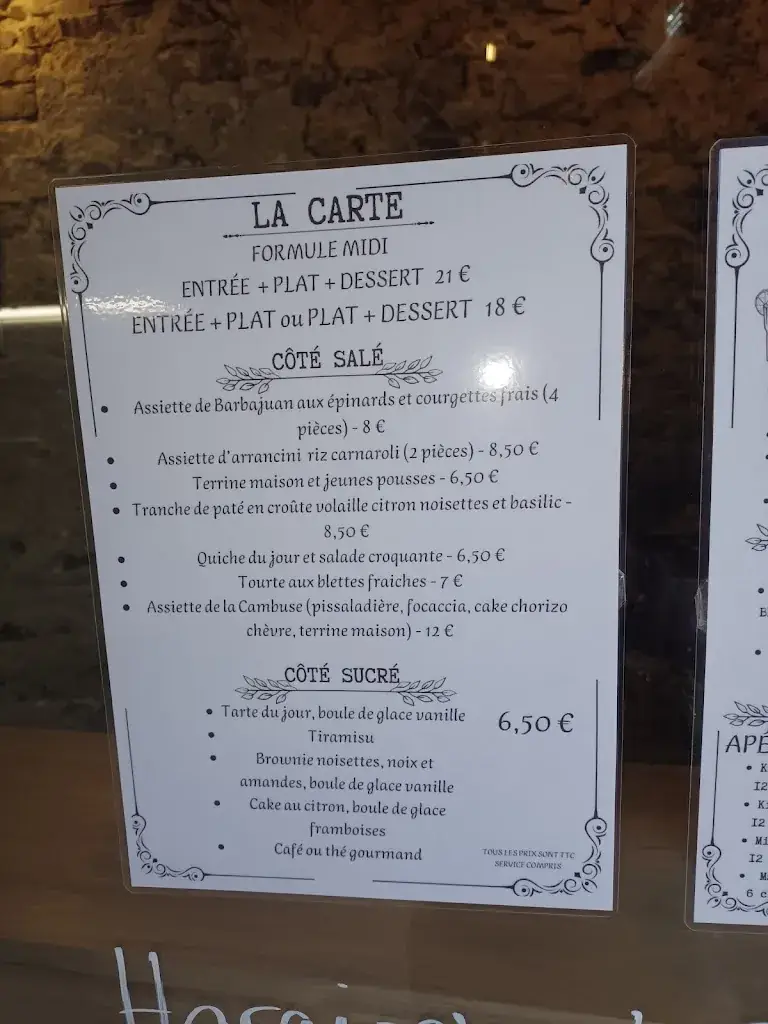 LA CARTE
FORMULE MIDI
ENTRÉE + PLAT + DESSERT 21 €
ENTRÉE + PLAT ou PLAT + DESSERT 18 €
CÔTÉ SALÉ
• Assiette de Barbajuan aux épinards et courgettes frais (4
pièces) - 8 €
• Assiette d'arrancini riz carnaroli (2 pièces) - 8,50 €
• Terrine maison et jeunes pousses - 6,50 €
• Tranche de paté en croûte volaille citron noisettes et basilic -
8,50 €
• Quiche du jour et salade croquante - 6,50 €
• Tourte aux blettes fraiches - 7 €
• Assiette de la Cambuse (pissaladière, focaccia, cake chorizo
chèvre, terrine maison) - 12 €
CÔTÉ SUCRÉ
• Tarte du jour, boule de glace vanille 6,50 €
• Tiramisu
• Brownie noisettes, noix et
amandes, boule de glace vanille
• Cake au citron, boule de glace
framboises
• Café ou thé gourmand
TOUS LES PRIX SONT TTC
SERVICE COMPRIS